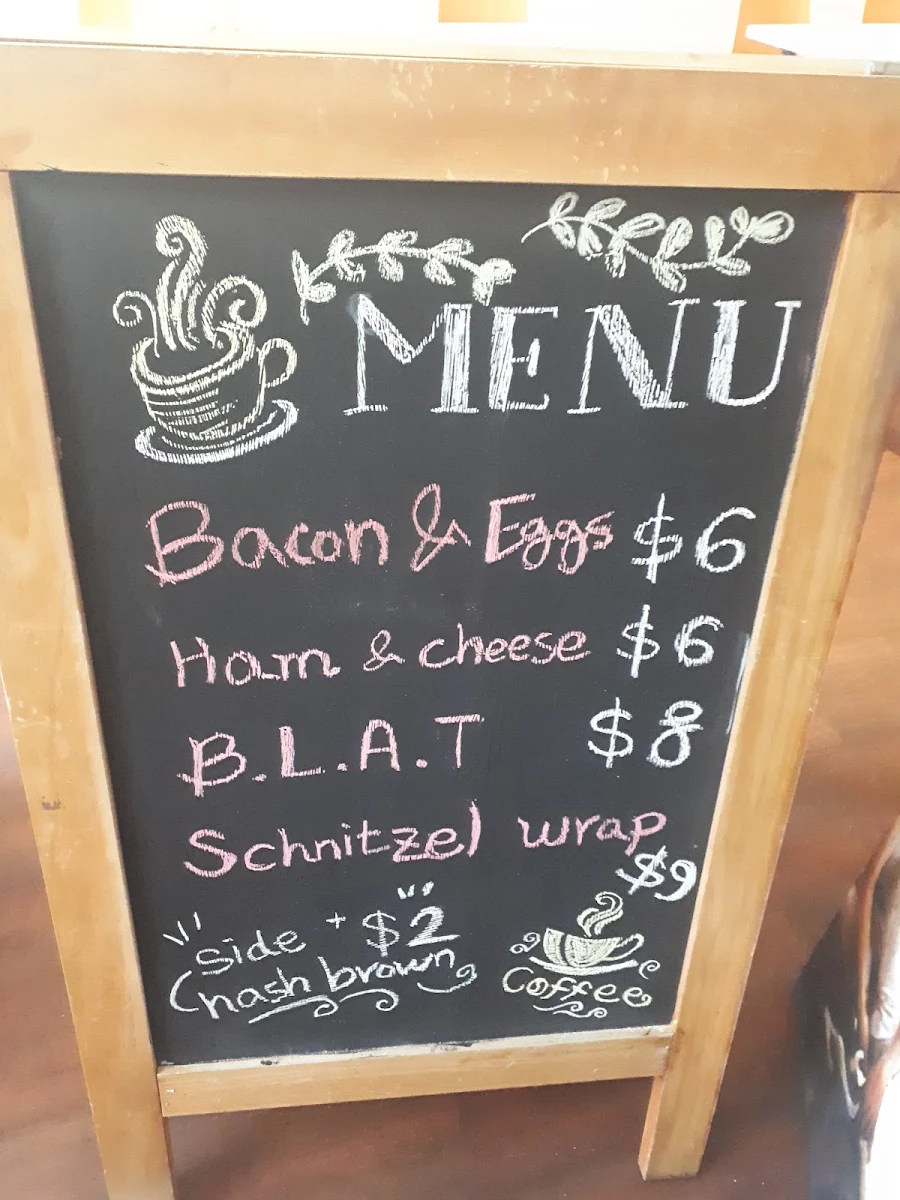 MENU
Bacon & Eggs $6
Ham & cheese $6
B.L.A.T $8
Schnitzel wrap
$9
Side + $2
(hash brown)
Coffee